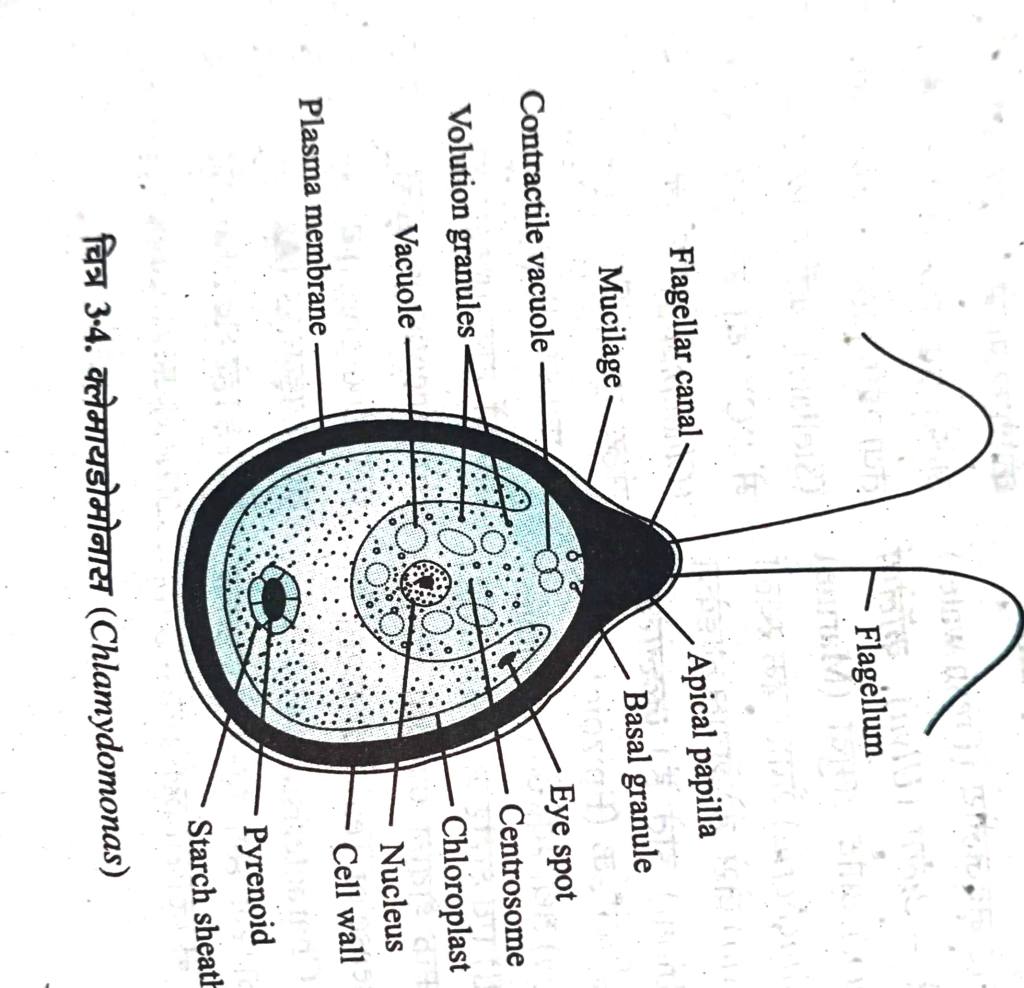 Flagellum
Flagellar canal
Apical papilla
Mucilage
Basal granule
Contractile vacuole
Eye spot
Volution granules
Centrosome
Vacuole
Chloroplast
Nucleus
Plasma membrane
Cell wall
Pyrenoid
Starch sheath
चित्र 3·4. क्लेमायडोमोनास (Chlamydomonas)